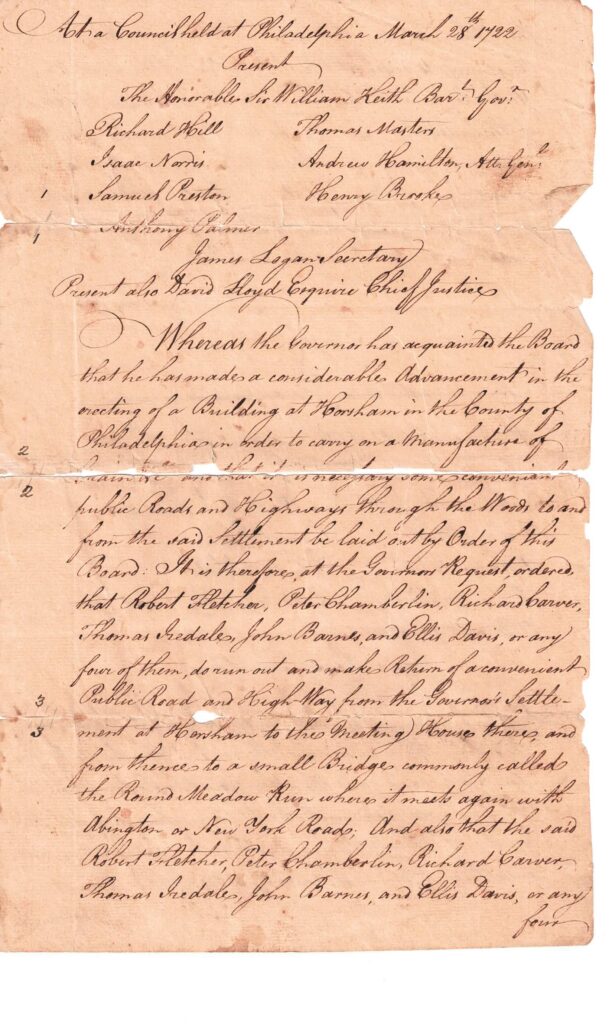 At a Council held at Philadelphia March 28th 1722
Present
The Honorable Sir William Keith Bart. Govr.
Richard Hill Thomas Masters
Isaac Norris Andrew Hamilton, Att. Genl.
1 Samuel Preston Henry Brooke
1 Anthony Palmer
James Logan Secretary
Present also David Lloyd Esquire Chief Justice
Whereas the Governor has acquainted the Board
that he has made a considerable Advancement in the
erecting of a Building at Horsham in the County of
2 Philadelphia in order to carry on a Manufacture of
2 and that it is necessary some convenient
public Roads and Highways through the Woods to and
from the said Settlement be laid out by Order of this
Board: It is therefore, at the Governors Request, ordered,
that Robert Fletcher, Peter Chamberlin, Richard Carver,
Thomas Iredale, John Barnes, and Ellis Davis, or any
four of them, do run out and make Return of a convenient
3 Public Road and High Way from the Governor's Settle-
3 ment at Horsham to the Meeting House there, and
from thence to a small Bridge commonly called
the Round Meadow Run where it meets again with
Abington or New York Road; And also that the said
Robert Fletcher, Peter Chamberlin, Richard Carver,
Thomas Iredale, John Barnes, and Ellis Davis, or any
four